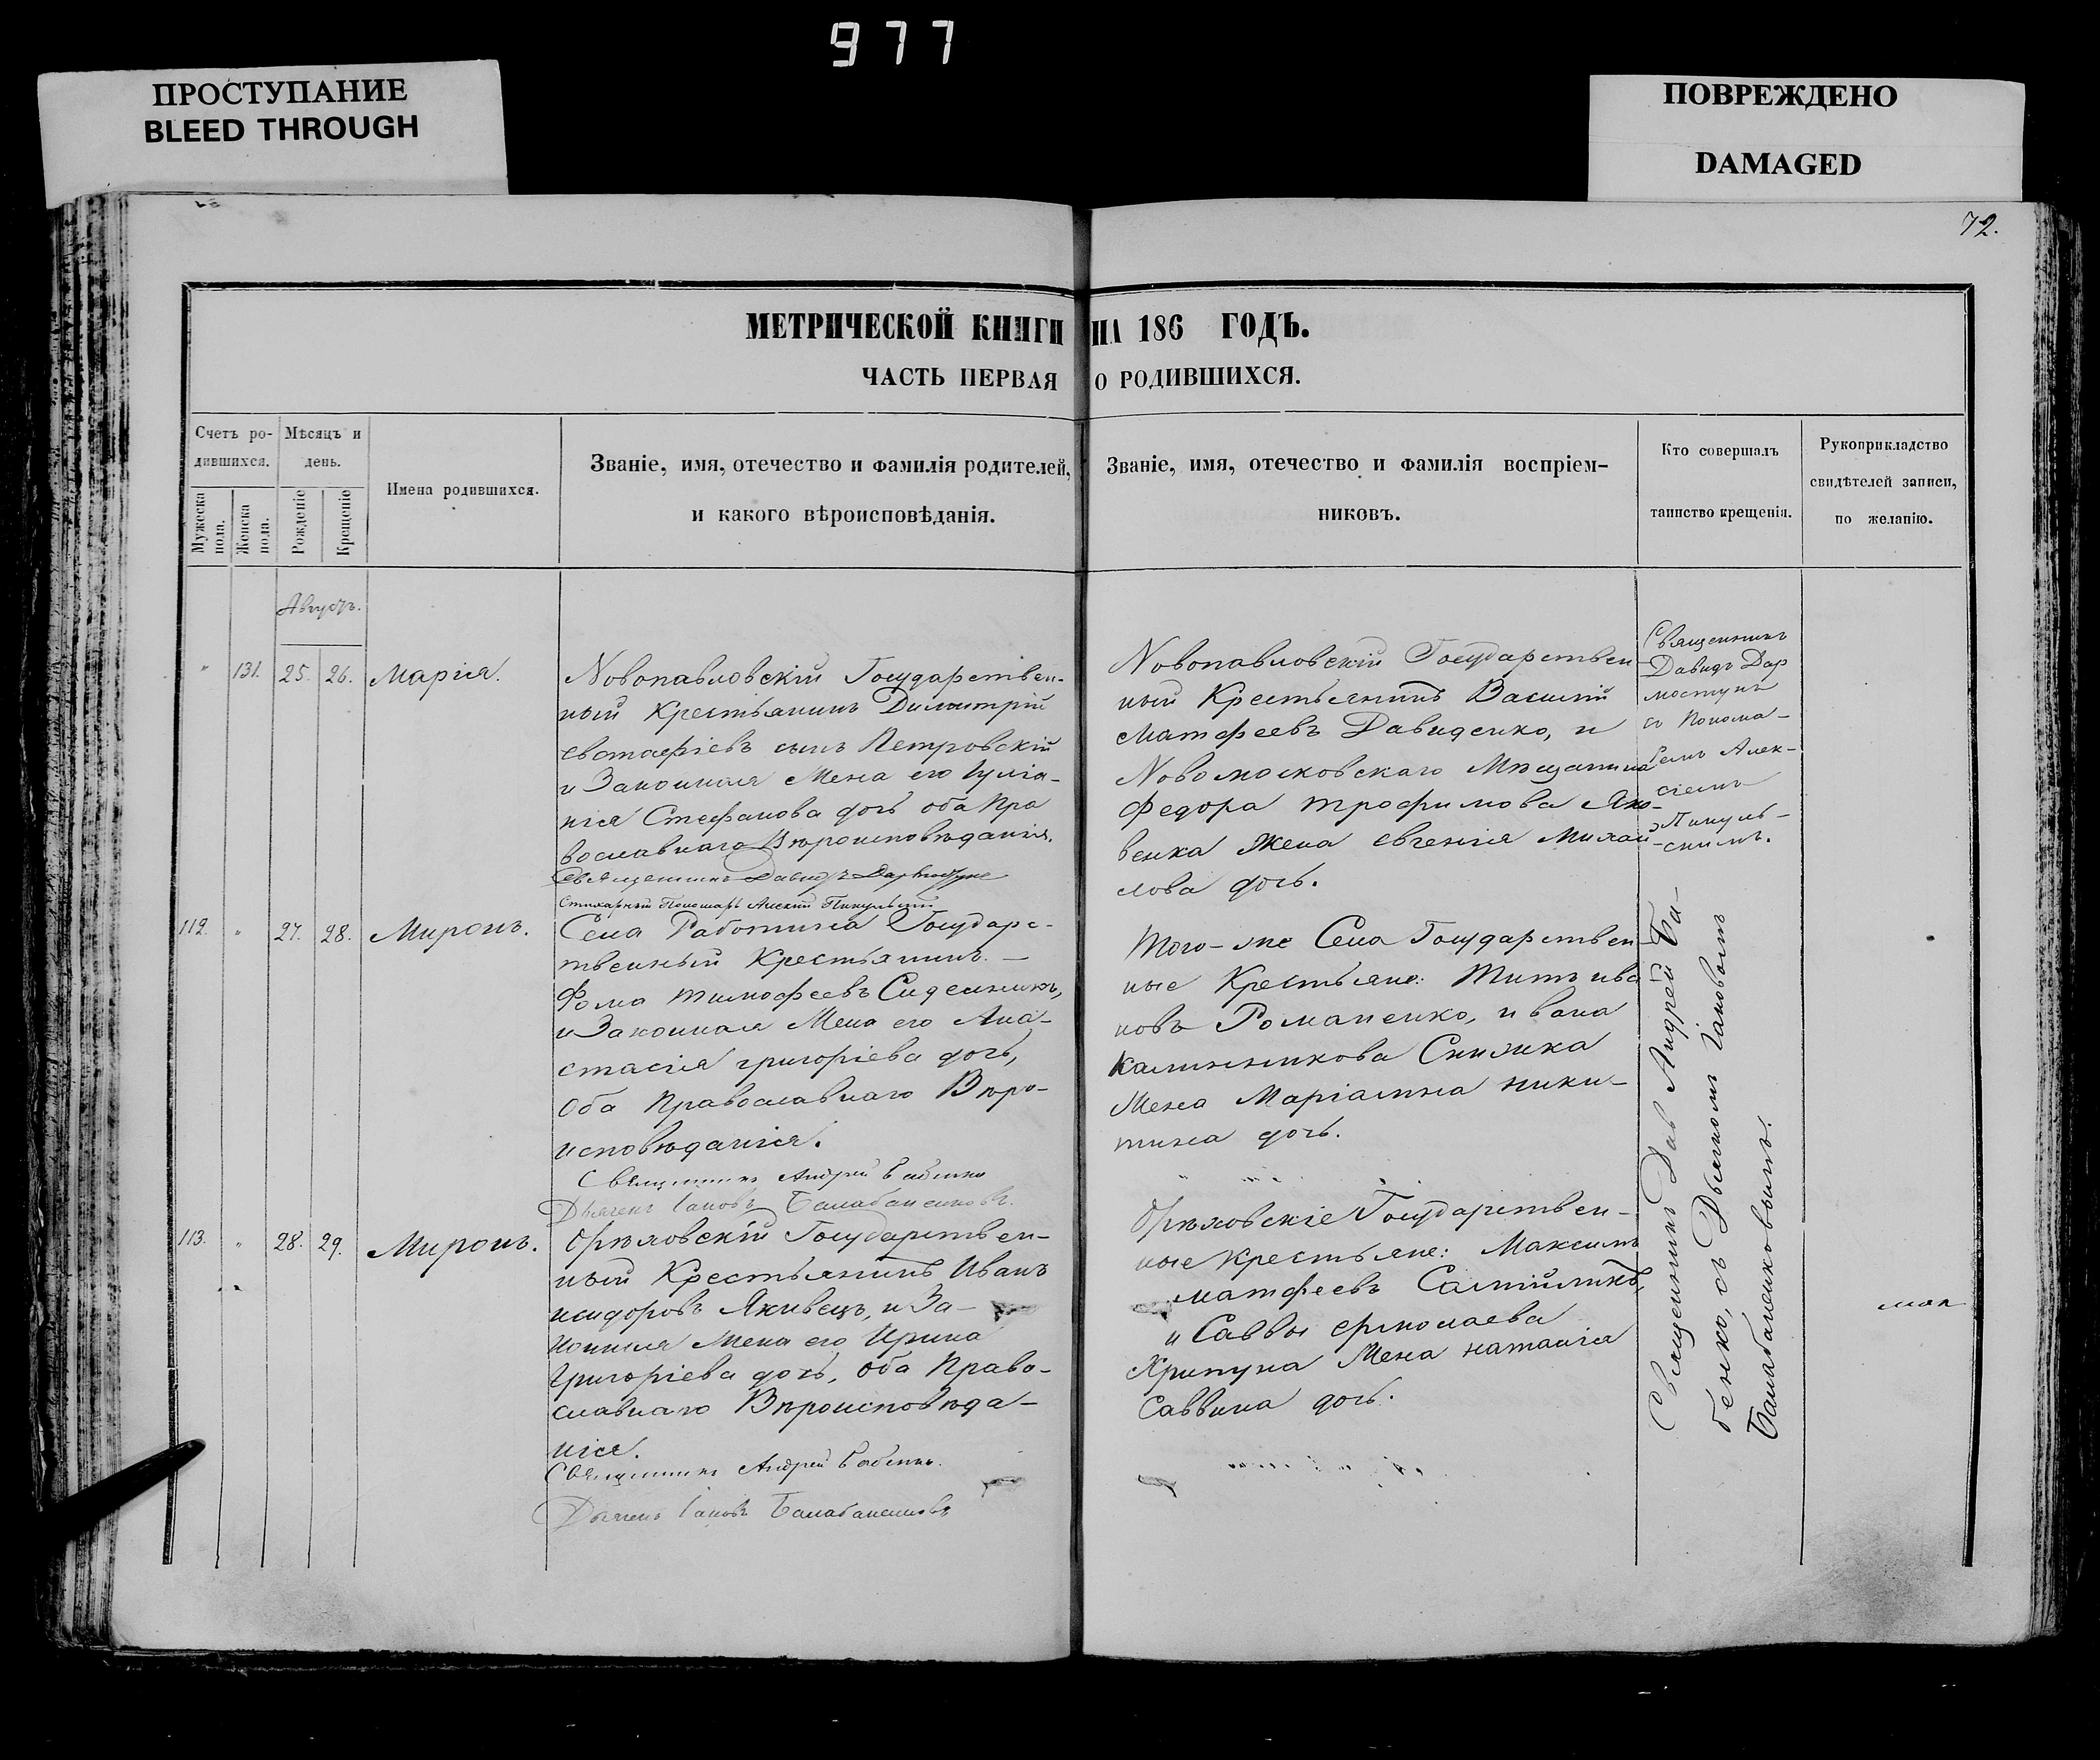 977
ПРОСТУПАНИЕ
BLEED THROUGH
ПОВРЕЖДЕНО
DAMAGED
72.
МЕТРИЧЕСКОЙ КНИГИ НА 186 ГОДЪ.
ЧАСТЬ ПЕРВАЯ О РОДИВШИХСЯ.
Счетъ ро-
дившихся.
Мужеска
пола.
Женска
пола.
Мѣсяцъ и
день.
Рожденіе
Крещеніе
Имена родившихся.
Званіе, имя, отечество и фамилія родителей,
и какого вѣроисповѣданія.
Званіе, имя, отечество и фамилія воспріем-
никовъ.
Кто совершалъ
таинство крещенія.
Рукоприкладство
свидѣтелей записи,
по желанію.
Августъ.
" 131. 25. 26. Марія.
Новопавловскій Государствен-
ный Крестьянинъ Димитрій
евстафіевъ сынъ Петровскій
и Законная Жена его Іулiа-
нія Стефанова дочь оба Пра
вославнаго Вѣроисповѣданія.
Священникъ Давидъ
Стихарный Пономарь Алексій Пикульскій
Новопавловскій Государствен
ный Крестьянинъ Василій
Матфеевъ Давиденко, и
Новомосковскаго Мѣщанина
Федора трофимова Яко-
венка Жена евгенія Михай
лова дочь.
Священникъ
Давидъ Дар
мостукъ
съ Понома-
ремъ Алек-
сіемъ
Пикуль-
скимъ.
112. " 27. 28. Миронъ.
Села Работина Государс-
твенный Крестьянинъ. —
Фома тимофеевъ
и Законная Жена его Ана-
стасія григоріева дочь,
Оба Православнаго Вѣро-
исповѣданія.
Священникъ Андрей Бабенко
Дьячекъ Іаковъ Балабаненковъ.
Того-же Села Государствен
ные Крестьяне: Титъ ива
новъ Романенко, ивана
Калинникова
Жена Маріамна ники-
тина дочь.
113. " 28. 29. Миронъ.
Орѣховскій Государствен-
ный Крестьянинъ Иванъ
исидоровъ Якивецъ, и За-
конная Жена его Ирина
Григоріева дочь, оба Право-
славнаго Вѣроисповѣда-
нія.
Священникъ Андрей Бабенко.
Дьячекъ Іаковъ Балабаненковъ
Орѣховскіе Государствен-
ные крестьяне: Максимъ
матфеевъ
и Саввы ермолаева
Хрипуна Жена наталія
Саввина дочь.
Священникъ Андрей Ба-
бенко, съ Дьячкомъ Іаковомъ
Балабаненковымъ.